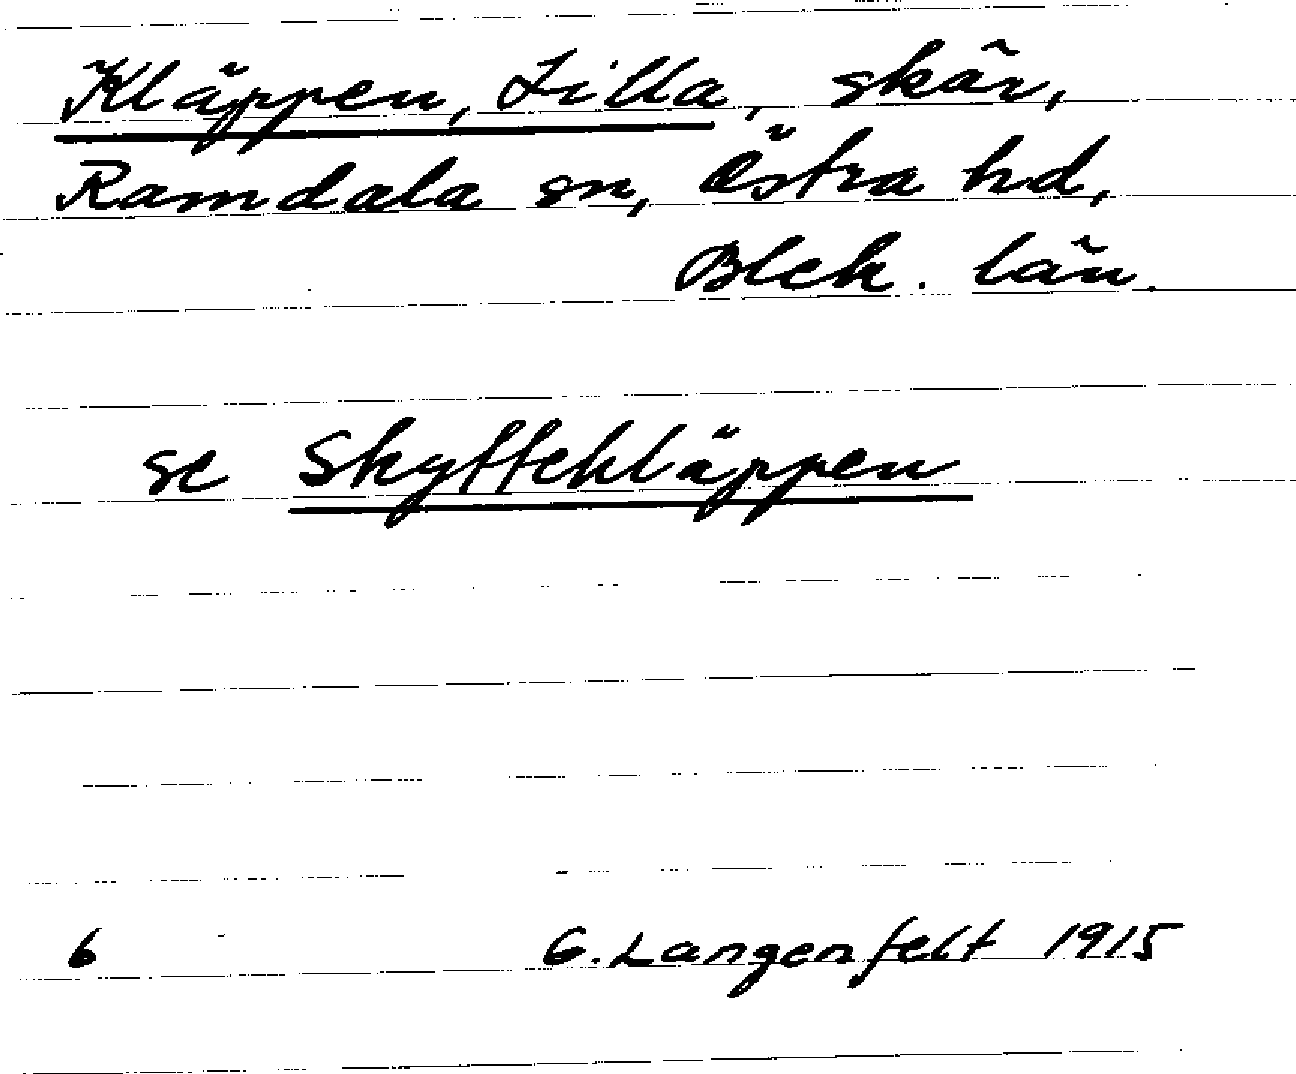 Kläppen, Lilla, skär,
Ramdala sn, Östra hd,
Blek. län.
se Skyffekläppen
6 G. Langenfelt 1915